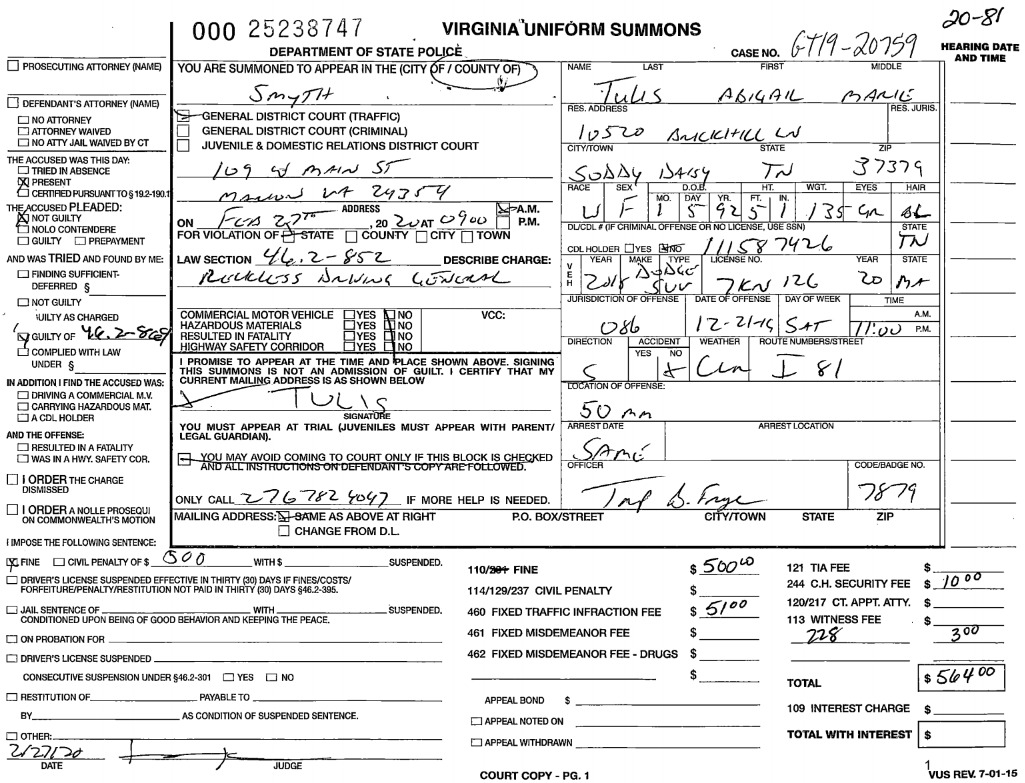 20-81
000 25238747
VIRGINIA UNIFORM SUMMONS
DEPARTMENT OF STATE POLICE
CASE NO. GT19-20759
HEARING DATE
AND TIME
PROSECUTING ATTORNEY (NAME)
DEFENDANT'S ATTORNEY (NAME)
NO ATTORNEY
ATTORNEY WAIVED
NO ATTY JAIL WAIVED BY CT
THE ACCUSED WAS THIS DAY:
TRIED IN ABSENCE
PRESENT
CERTIFIED PURSUANT TO § 19.2-190.1
THE ACCUSED PLEADED:
NOT GUILTY
NOLO CONTENDERE
GUILTY PREPAYMENT
AND WAS TRIED AND FOUND BY ME:
FINDING SUFFICIENT-
DEFERRED §
NOT GUILTY
UILTY AS CHARGED
GUILTY OF 46.2-869
COMPLIED WITH LAW
UNDER §
IN ADDITION I FIND THE ACCUSED WAS:
DRIVING A COMMERCIAL M.V.
CARRYING HAZARDOUS MAT.
A CDL HOLDER
AND THE OFFENSE:
RESULTED IN A FATALITY
WAS IN A HWY. SAFETY COR.
I ORDER THE CHARGE
DISMISSED
I ORDER A NOLLE PROSEQUI
ON COMMONWEALTH'S MOTION
I IMPOSE THE FOLLOWING SENTENCE:
YOU ARE SUMMONED TO APPEAR IN THE (CITY OF / COUNTY OF)
SMYTH
GENERAL DISTRICT COURT (TRAFFIC)
GENERAL DISTRICT COURT (CRIMINAL)
JUVENILE & DOMESTIC RELATIONS DISTRICT COURT
109 W MAIN ST
MARION VA 24354
ADDRESS
ON FEB 27TH, 20 20 AT 0900 A.M.
P.M.
FOR VIOLATION OF STATE COUNTY CITY TOWN
LAW SECTION 46.2-852 DESCRIBE CHARGE:
RECKLESS DRIVING GENERAL
COMMERCIAL MOTOR VEHICLE YES NO VCC:
HAZARDOUS MATERIALS YES NO
RESULTED IN FATALITY YES NO
HIGHWAY SAFETY CORRIDOR YES NO
I PROMISE TO APPEAR AT THE TIME AND PLACE SHOWN ABOVE. SIGNING
THIS SUMMONS IS NOT AN ADMISSION OF GUILT. I CERTIFY THAT MY
CURRENT MAILING ADDRESS IS AS SHOWN BELOW
TULIS
SIGNATURE
YOU MUST APPEAR AT TRIAL (JUVENILES MUST APPEAR WITH PARENT/
LEGAL GUARDIAN).
YOU MAY AVOID COMING TO COURT ONLY IF THIS BLOCK IS CHECKED
AND ALL INSTRUCTIONS ON DEFENDANT'S COPY ARE FOLLOWED.
ONLY CALL 276 782 4047 IF MORE HELP IS NEEDED.
MAILING ADDRESS: SAME AS ABOVE AT RIGHT P.O. BOX/STREET CITY/TOWN STATE ZIP
CHANGE FROM D.L.
NAME LAST FIRST MIDDLE
TULIS ABIGAIL MARIE
RES. ADDRESS RES. JURIS.
10520 BRICKHILL LN
CITY/TOWN STATE ZIP
SODDY DAISY TN 37379
RACE SEX D.O.B. HT. WGT. EYES HAIR
MO. DAY YR. FT. IN.
W F 1 5 92 5 1 135
DL/CDL # (IF CRIMINAL OFFENSE OR NO LICENSE, USE SSN) STATE
CDL HOLDER YES NO 111587426 TN
VEH YEAR MAKE TYPE LICENSE NO. YEAR STATE
DODGE
SUV 7KN 126 20 MA
JURISDICTION OF OFFENSE DATE OF OFFENSE DAY OF WEEK TIME
A.M.
086 12-21-19 SAT 11:00 P.M.
DIRECTION ACCIDENT WEATHER ROUTE NUMBERS/STREET
YES NO
S I 81
LOCATION OF OFFENSE:
50 mm
ARREST DATE ARREST LOCATION
SAME
OFFICER CODE/BADGE NO.
7879
FINE CIVIL PENALTY OF $ 500 WITH $ SUSPENDED.
DRIVER'S LICENSE SUSPENDED EFFECTIVE IN THIRTY (30) DAYS IF FINES/COSTS/
FORFEITURE/PENALTY/RESTITUTION NOT PAID IN THIRTY (30) DAYS §46.2-395.
JAIL SENTENCE OF WITH SUSPENDED.
CONDITIONED UPON BEING OF GOOD BEHAVIOR AND KEEPING THE PEACE.
ON PROBATION FOR
DRIVER'S LICENSE SUSPENDED
CONSECUTIVE SUSPENSION UNDER §46.2-301 YES NO
RESTITUTION OF PAYABLE TO
BY AS CONDITION OF SUSPENDED SENTENCE.
OTHER:
2/27/20
DATE JUDGE
110/201 FINE $ 500 00
114/129/237 CIVIL PENALTY $
460 FIXED TRAFFIC INFRACTION FEE $ 51 00
461 FIXED MISDEMEANOR FEE $
462 FIXED MISDEMEANOR FEE - DRUGS $
$
APPEAL BOND $
APPEAL NOTED ON
APPEAL WITHDRAWN
121 TIA FEE $
244 C.H. SECURITY FEE $ 10 00
120/217 CT. APPT. ATTY. $
113 WITNESS FEE $
228 3 00
TOTAL $ 564 00
109 INTEREST CHARGE $
TOTAL WITH INTEREST $
COURT COPY - PG. 1
1
VUS REV. 7-01-15